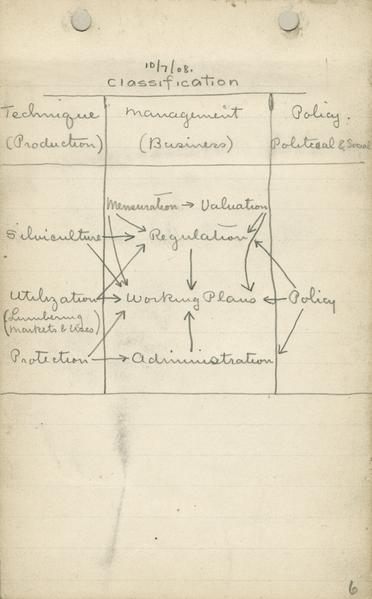 10/7/08.
Classification
Technique Management Policy.
(Production) (Business) Political & Social
Mensuration → Valuation
Silviculture Regulation
Utilization Working Plans Policy
(Lumbering
Markets & Uses)
Protection Administration
6